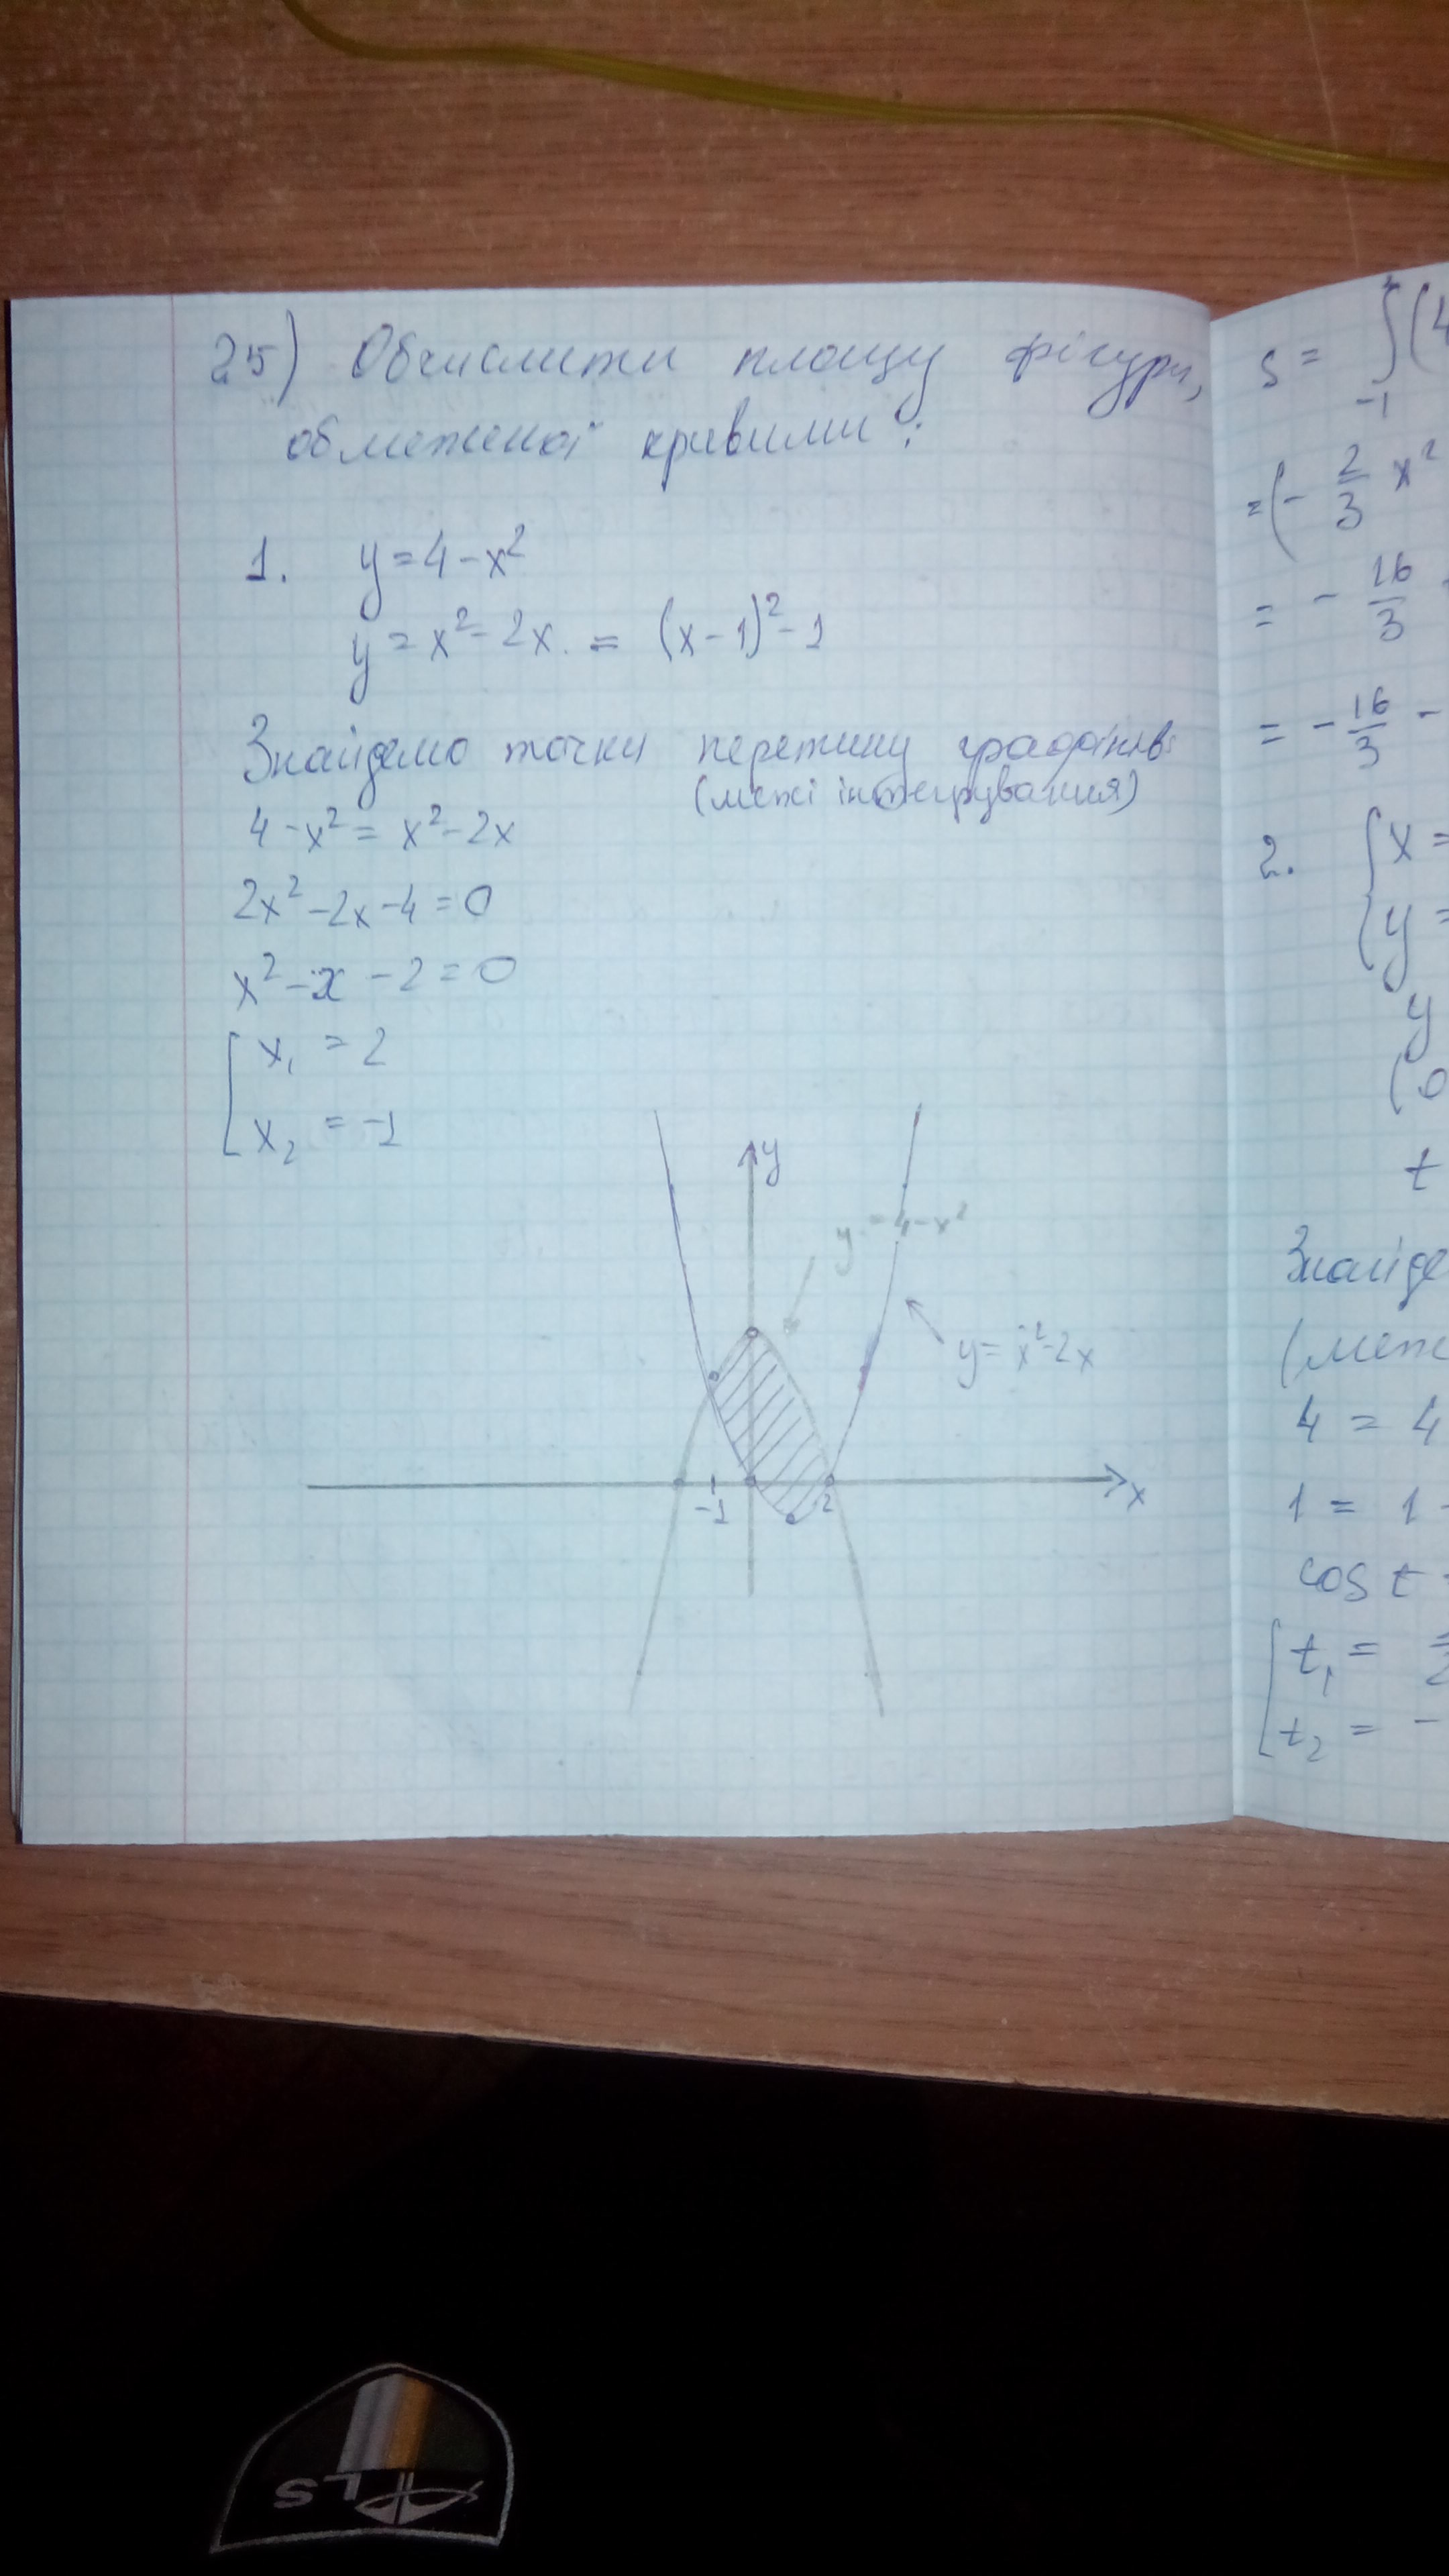 25) Обчислити площу фігури,
обмеженої кривими:
1. y = 4 - x²
y = x² - 2x. = (x - 1)² - 1
Знайдемо точки перетину графіків:
(межі інтегрування)
4 - x² = x² - 2x
2x² - 2x - 4 = 0
x² - x - 2 = 0
x₁ = 2
x₂ = -1
y
y = 4 - x²
y = x² - 2x
-1
2
x
S = ∫ (4
-1
= (- 2/3 x²
= - 16/3
= - 16/3 -
2. { x =
y =
y
(0
t
Знайде
(меж
4 = 4
1 = 1
cos t
t₁ =
t₂ = -
LS